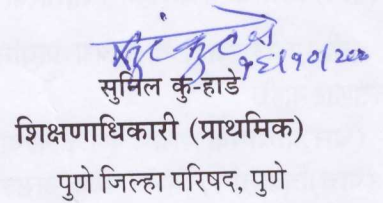 १६/१०/२००
सुनिल कु-हाडे
शिक्षणाधिकारी (प्राथमिक)
पुणे जिल्हा परिषद, पुणे